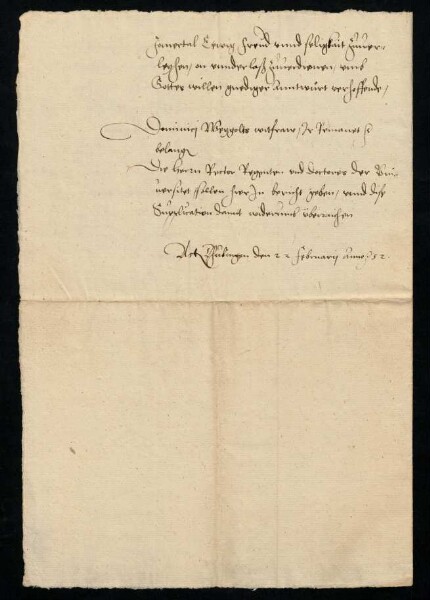 Jamertal Ewig freud unnd seligkait zuuer-
leyhen, on underlaß zuuerdienen, umb
Gottes willen gnediger Anntwurt verhoffende,
Dominici Weggolts witfraw, Ir
belang
Die herrn Rector Regenten und doctores der Uni-
uersitet sollen hierIn bericht geben, unnd dise
Supplication damit widerumb überraichen
Act Tübingen den 22 Februarij Anno 52.